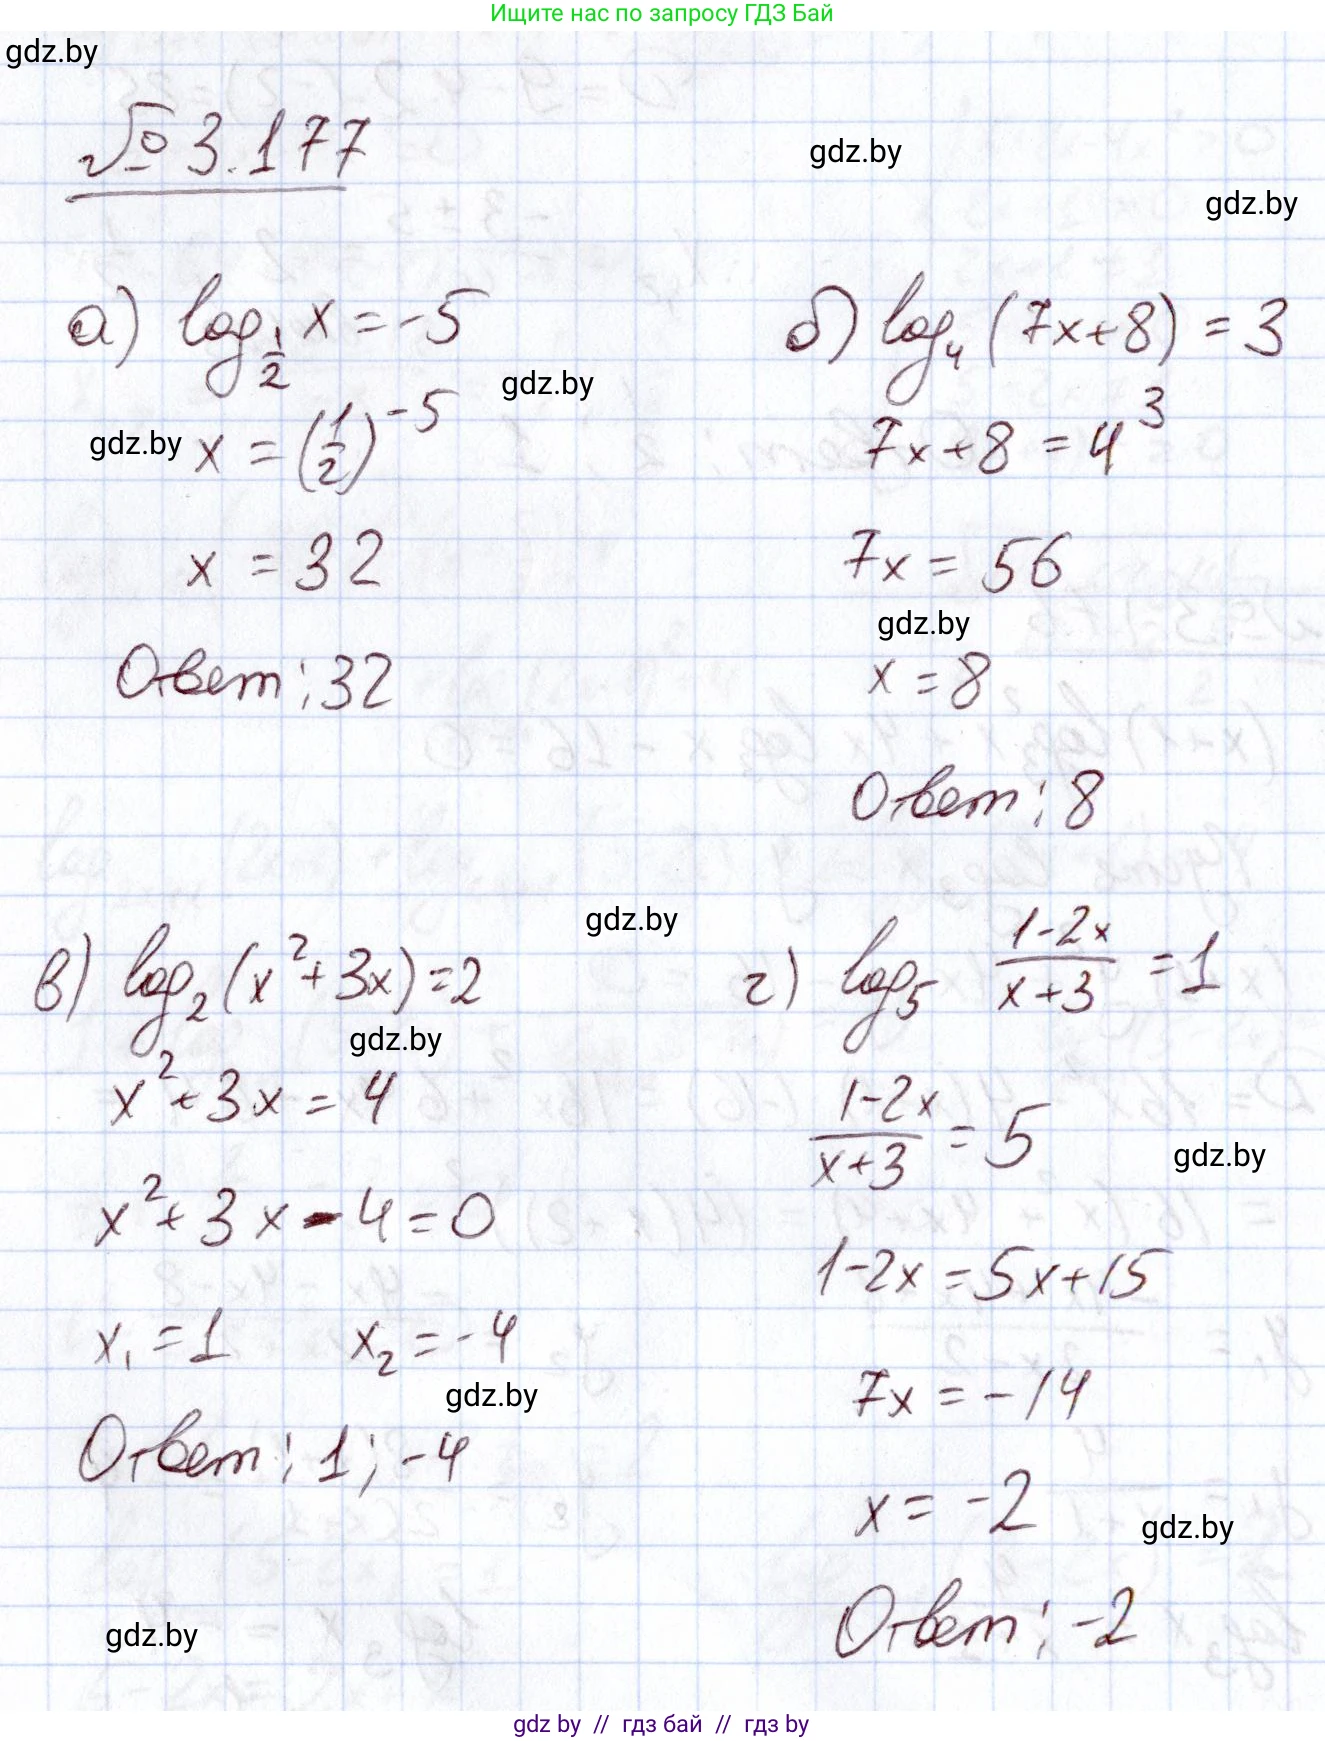 Ищите нас по запросу ГДЗ Бай
gdz.by
№ 3.177
gdz.by
gdz.by
а) log_{1/2} x = -5
gdz.by
gdz.by
x = (1/2)^{-5}
x = 32
Ответ: 32
б) log_4 (7x+8) = 3
7x+8 = 4^3
7x = 56
gdz.by
x = 8
Ответ: 8
gdz.by
в) log_2 (x^2+3x) = 2
gdz.by
x^2+3x = 4
x^2+3x-4=0
x_1 = 1 x_2 = -4
gdz.by
Ответ: 1; -4
gdz.by
г) log_5 (1-2x)/(x+3) = 1
(1-2x)/(x+3) = 5
gdz.by
1-2x = 5x+15
7x = -14
x = -2
gdz.by
Ответ: -2
gdz by // гдз бай // гдз by